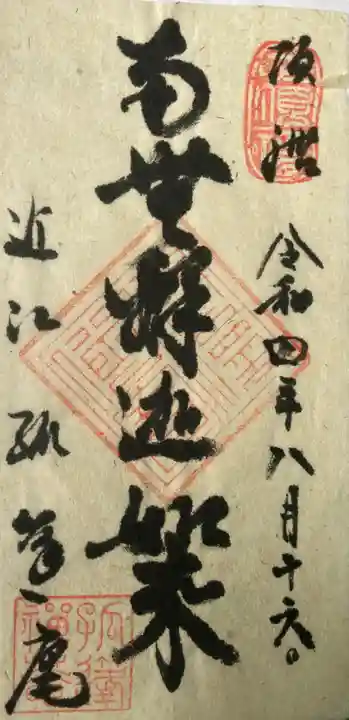 頂禮
令和四年八月十六日
南無釋迦如来
近江孤篷庵